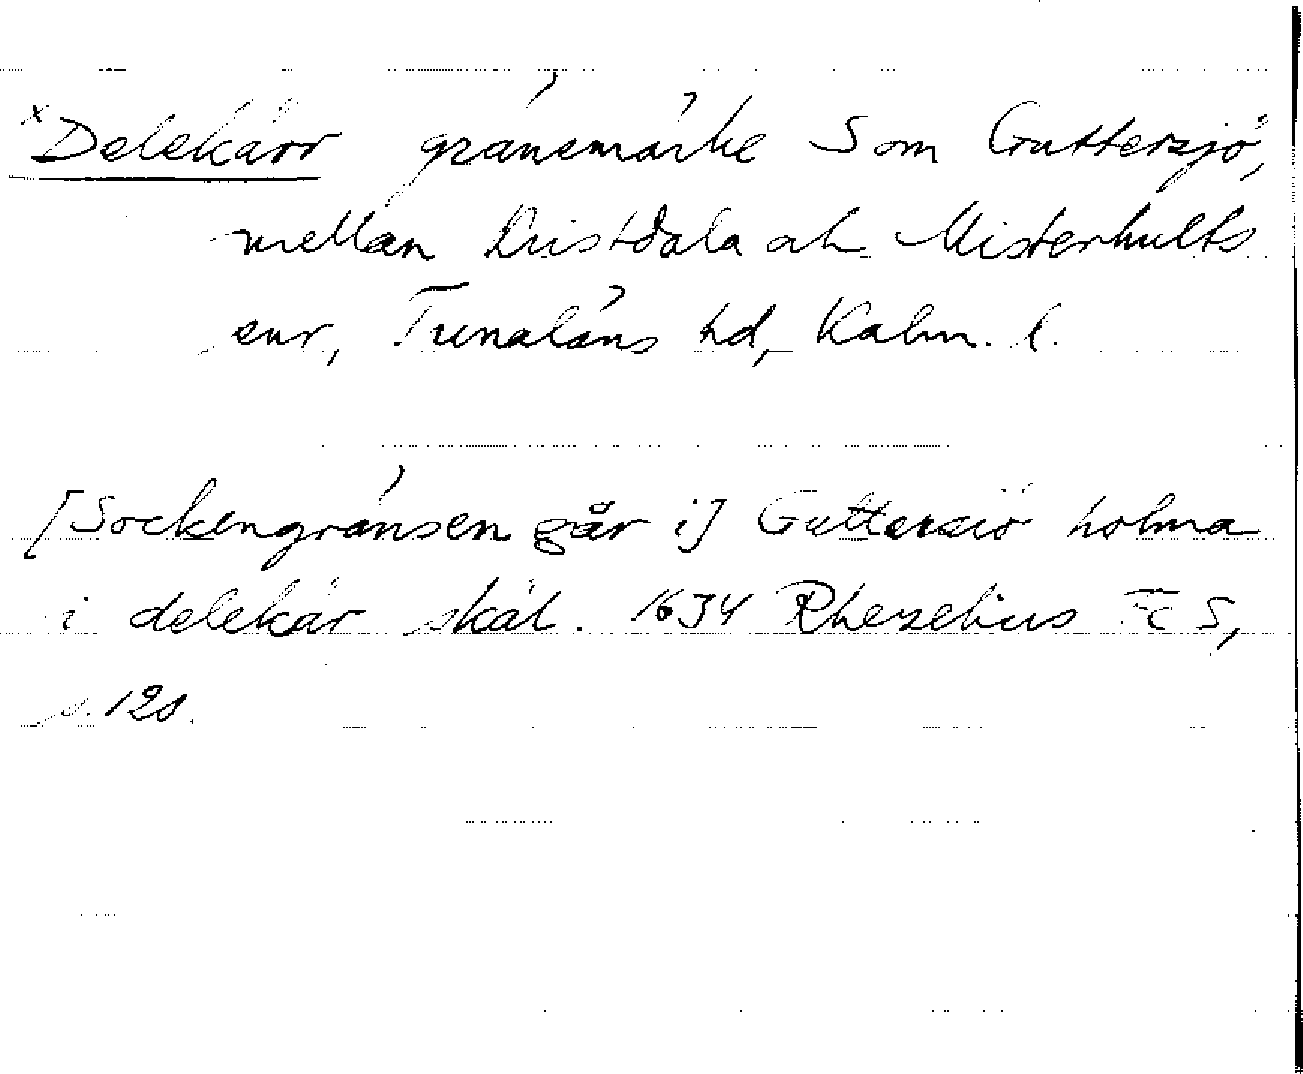 x Delekärr gränsmärke S om Guttersjö,
mellan Kristdala och Misterhults
snr, Tunaläns hd, Kalm. l.
[Sockengränsen går i] Guttersiö holma
i delekär skäl. 1634 Rhezelius Fc 5,
s. 120.